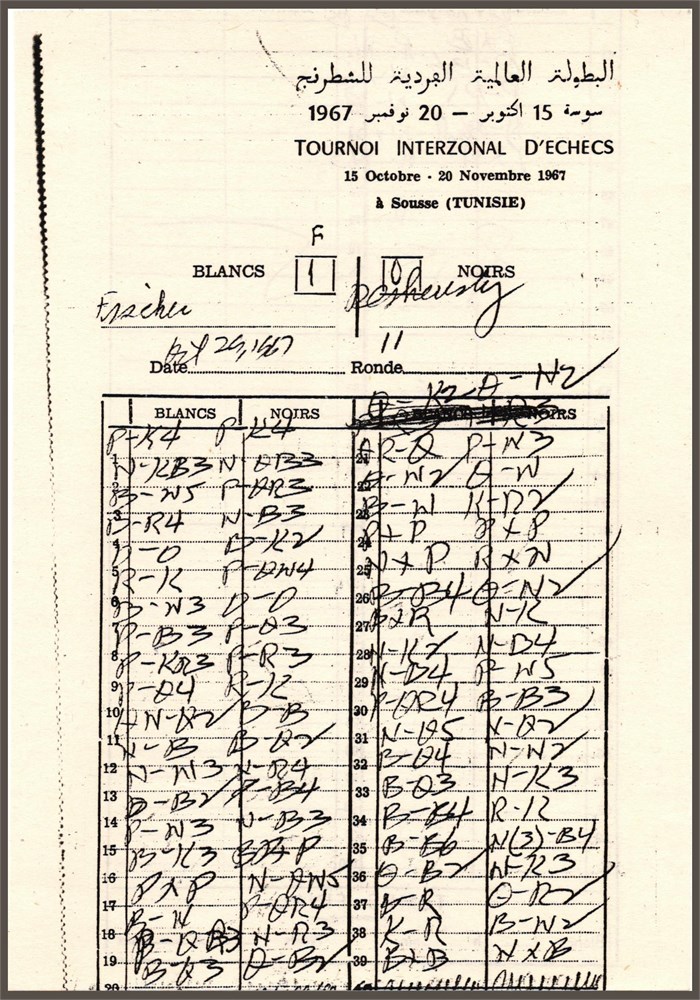 البطولة العالمية الفردية للشطرنج
سوسة 15 اكتوبر — 20 نوفمبر 1967
TOURNOI INTERZONAL D'ECHECS
15 Octobre - 20 Novembre 1967
à Sousse (TUNISIE)
F
BLANCS 1 0 NOIRS
Fischer Reshevsky
Date Ronde 11
Q-K2 Q-N2
BLANCS NOIRS NOIRS
P-K4 P-K4
1 N-KB3 N-QB3
2 B-N5 P-QR3
3 B-R4 N-B3
4 O-O B-K2
5 R-K P-QN4
6 B-N3 O-O
7 P-B3 P-Q3
8 P-KR3 P-R3
9 P-Q4 R-K
10 QN-Q2 B-B
11 N-B B-Q2
12 N-N3 N-R4
13 B-B2 P-B4
14 P-N3 N-B3
15 B-K3 P
16 PxP N-QN5
17 B-N P-QR4
18 B-Q N-R3
19 B-Q3 Q-B2
20
21 QR-Q P-N3
22 Q-N
23 B-N K-R2
24 PxP PxP
25 NxP RxN
26 B-B4 Q-N2
27 BxR N-K
28 N-K2 N-B4
29 N-B4 P-N5
30 P-QR4 B-B3
31 N-Q5 N-Q2
32 B-Q4 N-N2
33 B-Q3 N-K3
34 R-K
35 N(3)-B4
36 Q-B2 N-K3
37 Q-R2
38 K-R B-N2
39 BxB NxB